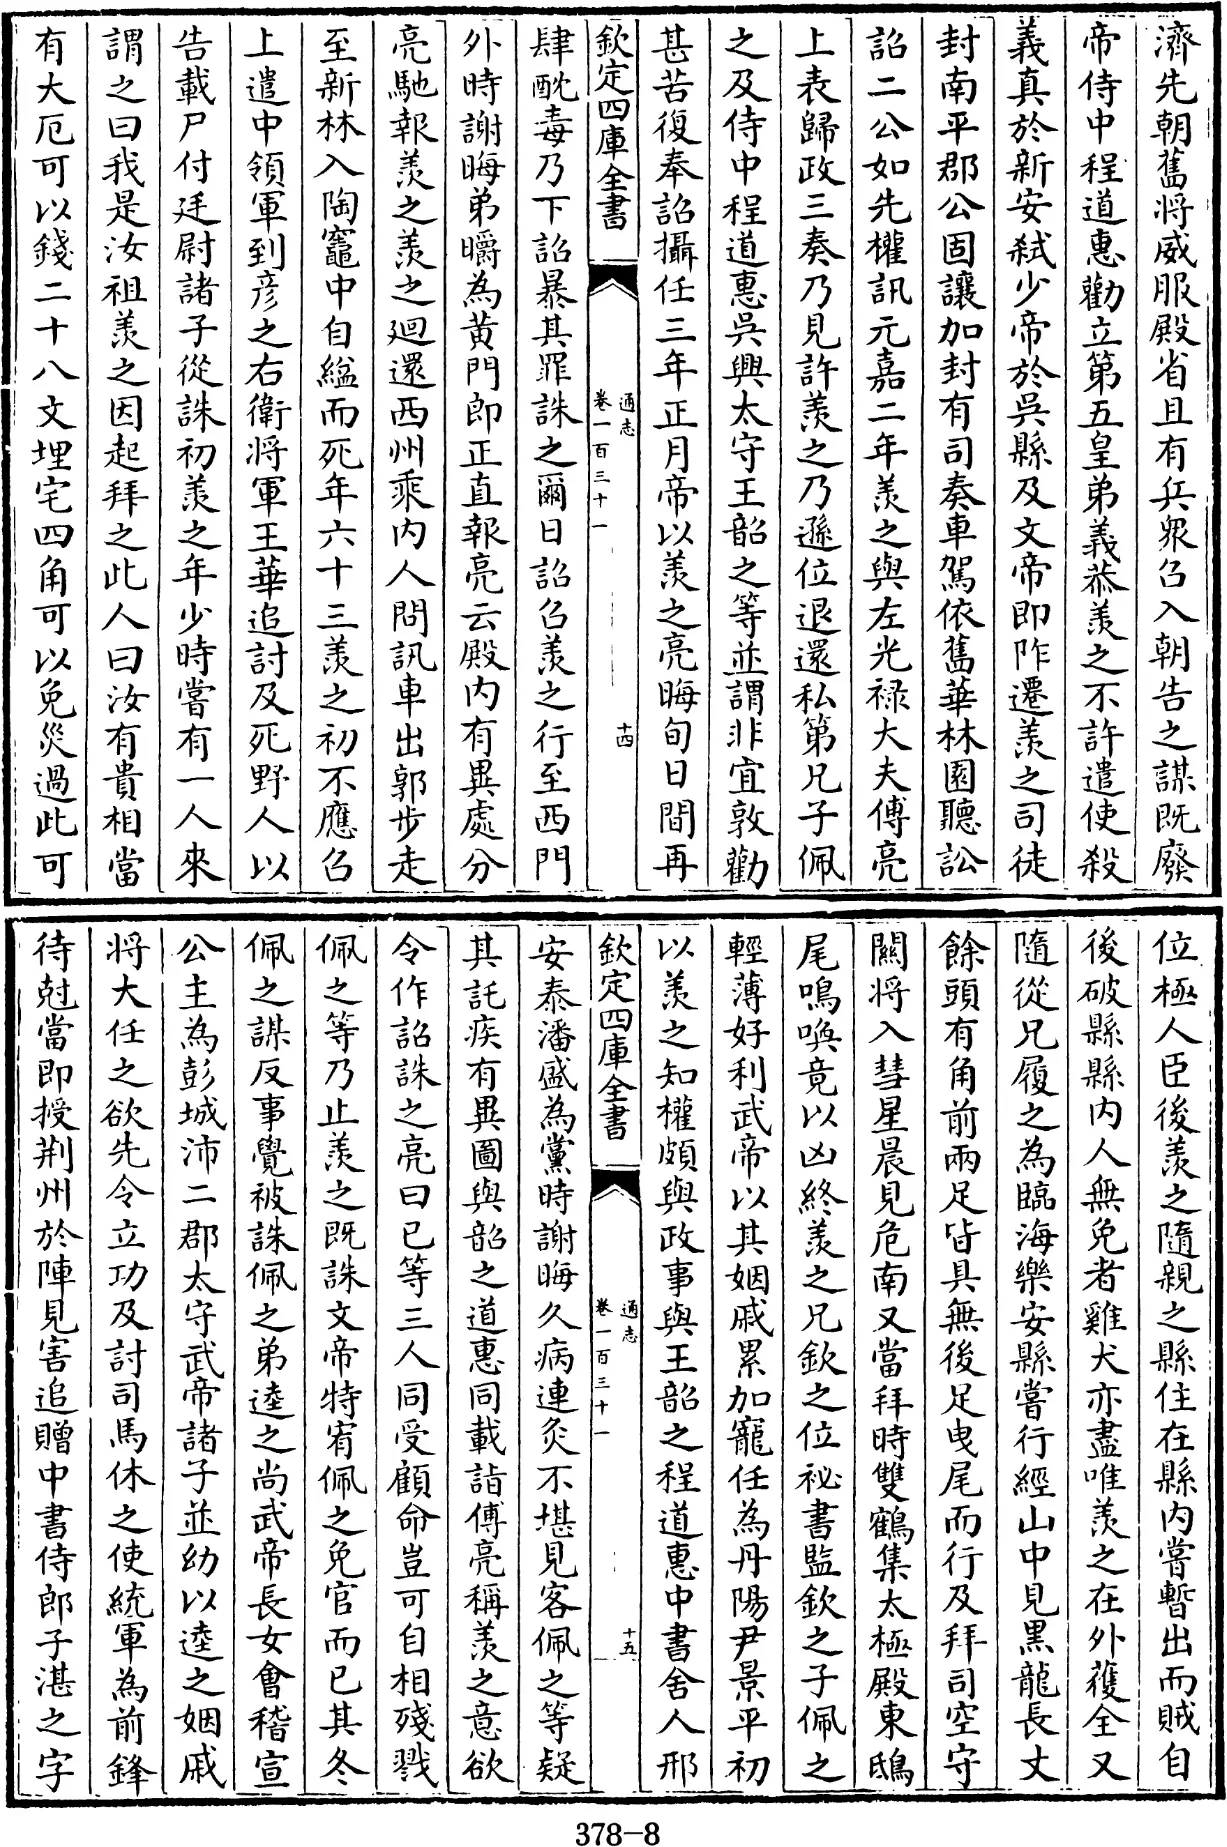 濟先朝舊將威服殿省且有兵衆召入朝告之謀既廢
帝侍中程道惠勸立第五皇弟義恭羨之不許遣使殺
義真於新安弒少帝於吳縣及文帝即阼遷羨之司徒
封南平郡公固讓加封有司奏車駕依舊華林園聽訟
詔二公如先權訊元嘉二年羨之與左光祿大夫傅亮
上表歸政三奏乃見許羨之乃遜位退還私第兄子佩
之及侍中程道惠吳興太守王韶之等並謂非宜敦勸
甚苦復奉詔攝任三年正月帝以羨之亮晦旬日間再
欽定四庫全書
通志
卷一百三十一
十四
肆酖毒乃下詔暴其罪誅之爾日詔召羨之行至西門
外時謝晦弟㬭為黄門郎正直報亮云殿内有異處分
亮馳報羨之羨之迴還西州乘内人問訊車出郭步走
至新林入陶竈中自縊而死年六十三羨之初不應召
上遣中領軍到彥之右衛將軍王華追討及死野人以
告載尸付廷尉諸子從誅初羨之年少時嘗有一人來
謂之曰我是汝祖羨之因起拜之此人曰汝有貴相當
有大厄可以錢二十八文埋宅四角可以免災過此可
位極人臣後羨之隨親之縣住在縣内嘗暫出而賊自
後破縣縣内人無免者雞犬亦盡唯羨之在外獲全又
隨從兄履之為臨海樂安縣嘗行經山中見黑龍長丈
餘頭有角前兩足皆具無後足曳尾而行及拜司空守
關將入彗星晨見危南又當拜時雙鶴集太極殿東鴟
尾鳴喚竟以凶終羨之兄欽之位祕書監欽之子佩之
輕薄好利武帝以其姻戚累加寵任為丹陽尹景平初
以羨之知權頗與政事與王韶之程道惠中書舍人邢
欽定四庫全書
通志
卷一百三十一
十五
安泰潘盛為黨時謝晦久病連灸不堪見客佩之等疑
其託疾有異圖與韶之道惠同載詣傅亮稱羨之意欲
令作詔誅之亮曰已等三人同受顧命豈可自相殘戮
佩之等乃止羨之既誅文帝特宥佩之免官而已其冬
佩之謀反事覺被誅佩之弟逵之尚武帝長女會稽宣
公主為彭城沛二郡太守武帝諸子並幼以逵之姻戚
將大任之欲先令立功及討司馬休之使統軍為前鋒
待尅當即授荆州於陣見害追贈中書侍郎子湛之字
378-8